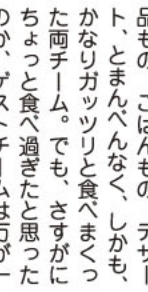 品もの、ごはんもの、デザー
ト、とまんべんなく、しかも、
かなりガッツリと食べまくっ
た両チーム。でも、さすがに
ちょっと食べ過ぎたと思った
のか、ゲストチームは